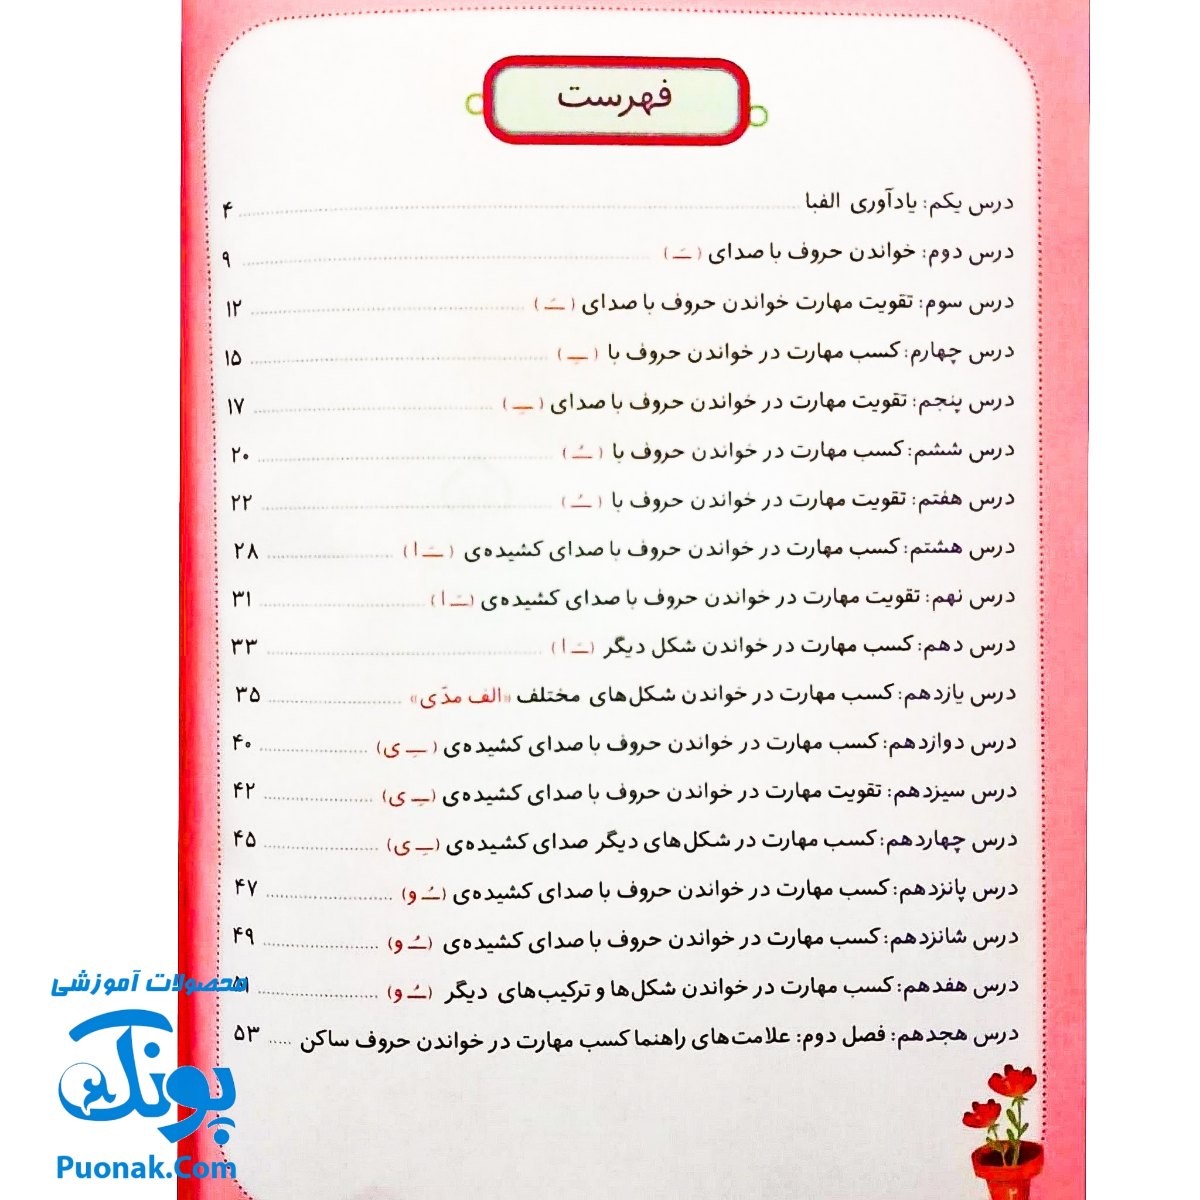 فهرست
درس یکم: یادآوری الفبا ۴
درس دوم: خواندن حروف با صدای (ــَـ) ۹
درس سوم: تقویت مهارت خواندن حروف با صدای (ــَـ) ۱۲
درس چهارم: کسب مهارت در خواندن حروف با (ــِـ) ۱۵
درس پنجم: تقویت مهارت در خواندن حروف با صدای (ــِـ) ۱۷
درس ششم: کسب مهارت در خواندن حروف با (ــُـ) ۲۰
درس هفتم: تقویت مهارت در خواندن حروف با (ــُـ) ۲۲
درس هشتم: کسب مهارت در خواندن حروف با صدای کشیده‌ی (ــَـ ا) ۲۸
درس نهم: تقویت مهارت در خواندن حروف با صدای کشیده‌ی (ــَـ ا) ۳۱
درس دهم: کسب مهارت در خواندن شکل دیگر (ــَـ ا) ۳۳
درس یازدهم: کسب مهارت در خواندن شکل‌های مختلف «الف مدّی» ۳۵
درس دوازدهم: کسب مهارت در خواندن حروف با صدای کشیده‌ی (ــِـ ی) ۴۰
درس سیزدهم: تقویت مهارت در خواندن حروف با صدای کشیده‌ی (ــِـ ی) ۴۲
درس چهاردهم: کسب مهارت در شکل‌های دیگر صدای کشیده‌ی (ــِـ ی) ۴۵
درس پانزدهم: کسب مهارت در خواندن حروف با صدای کشیده‌ی (ــُـ و) ۴۷
درس شانزدهم: کسب مهارت در خواندن حروف با صدای کشیده‌ی (ــُـ و) ۴۹
درس هفدهم: کسب مهارت در خواندن شکل‌ها و ترکیب‌های دیگر (ــُـ و) ۵۱
درس هجدهم: فصل دوم: علامت‌های راهنما کسب مهارت در خواندن حروف ساکن ۵۳
محصولات آموزشی
پونک
Puonak.Com